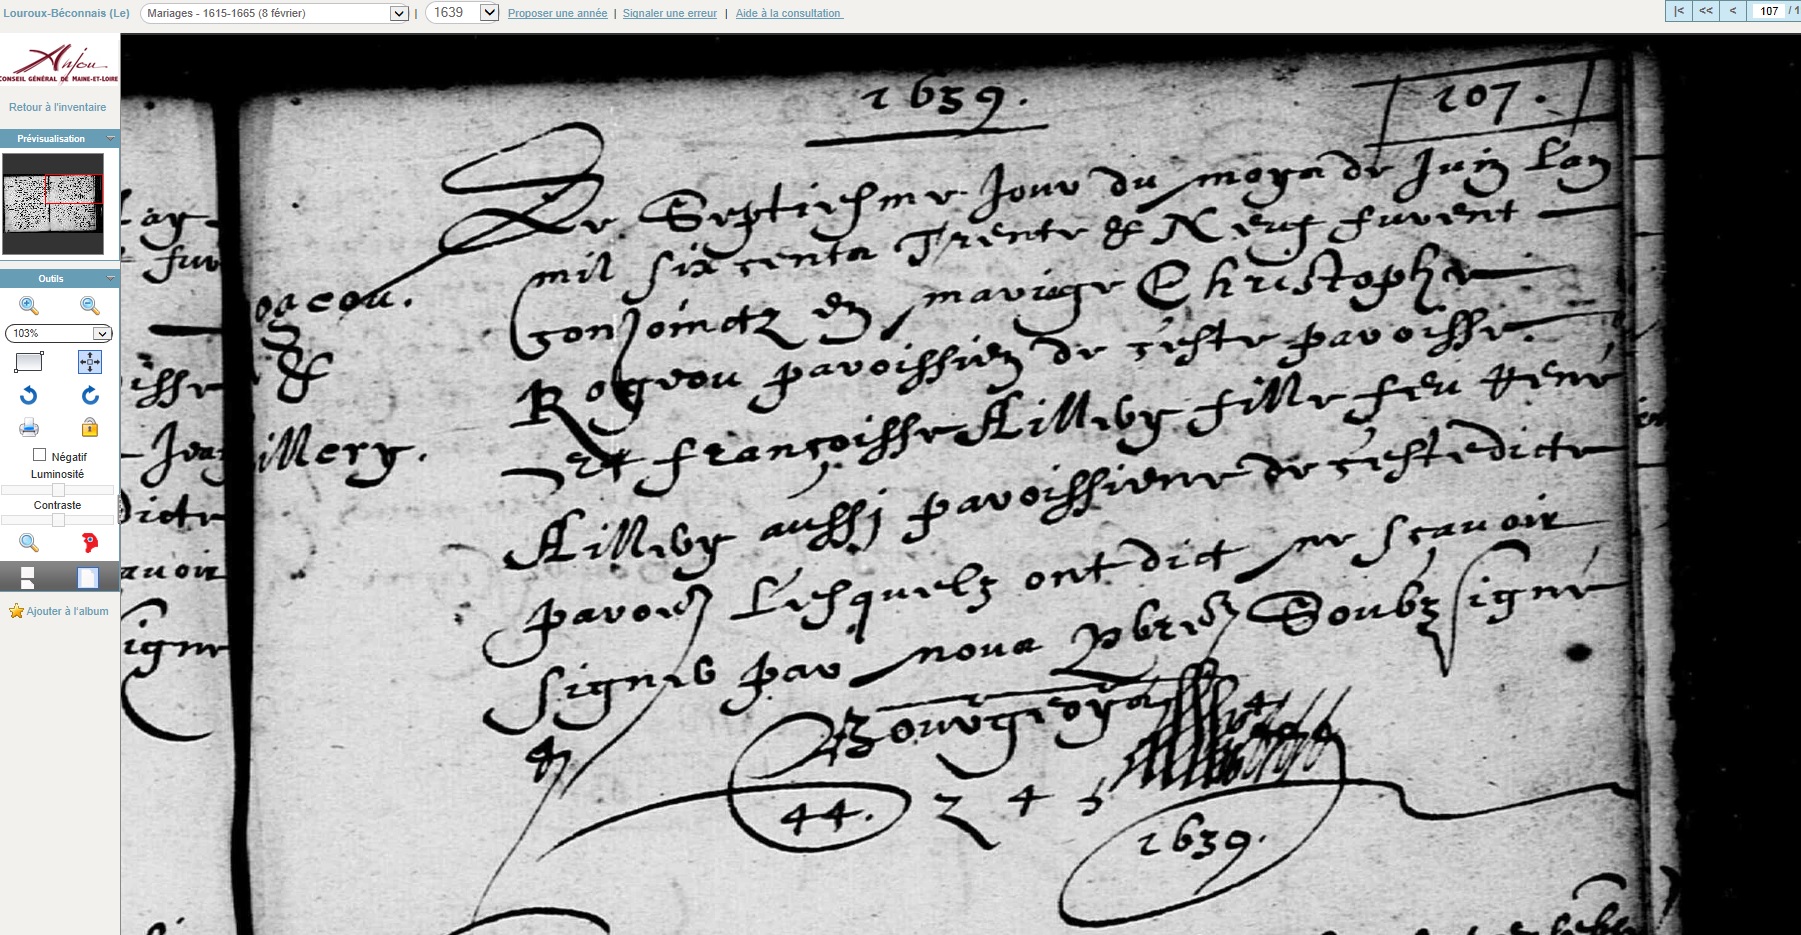 Louroux-Béconnais (Le) Mariages - 1615-1665 (8 février) | 1639 Proposer une année | Signaler une erreur | Aide à la consultation |< << < 107 / 1
Anjou
CONSEIL GÉNÉRAL DE MAINE-ET-LOIRE
Retour à l'inventaire
Prévisualisation
Outils
103%
Négatif
Luminosité
Contraste
Ajouter à l'album
1639.
107.
Le Septiesme Jour du moys de Juin L'an
mil six cents Trente & Neuf furent
conjoinctz en mariage Christophe
Rogeou paroissien de ceste paroisse.
Et françoisse Aillery fille feu René
Aillery aussj paroissienne de cestedicte
paroisse Lesquelz ont dict ne sçavoir
signer par nous pbre Soubzsigné
&
illery.
44. 2 4 5
1639.